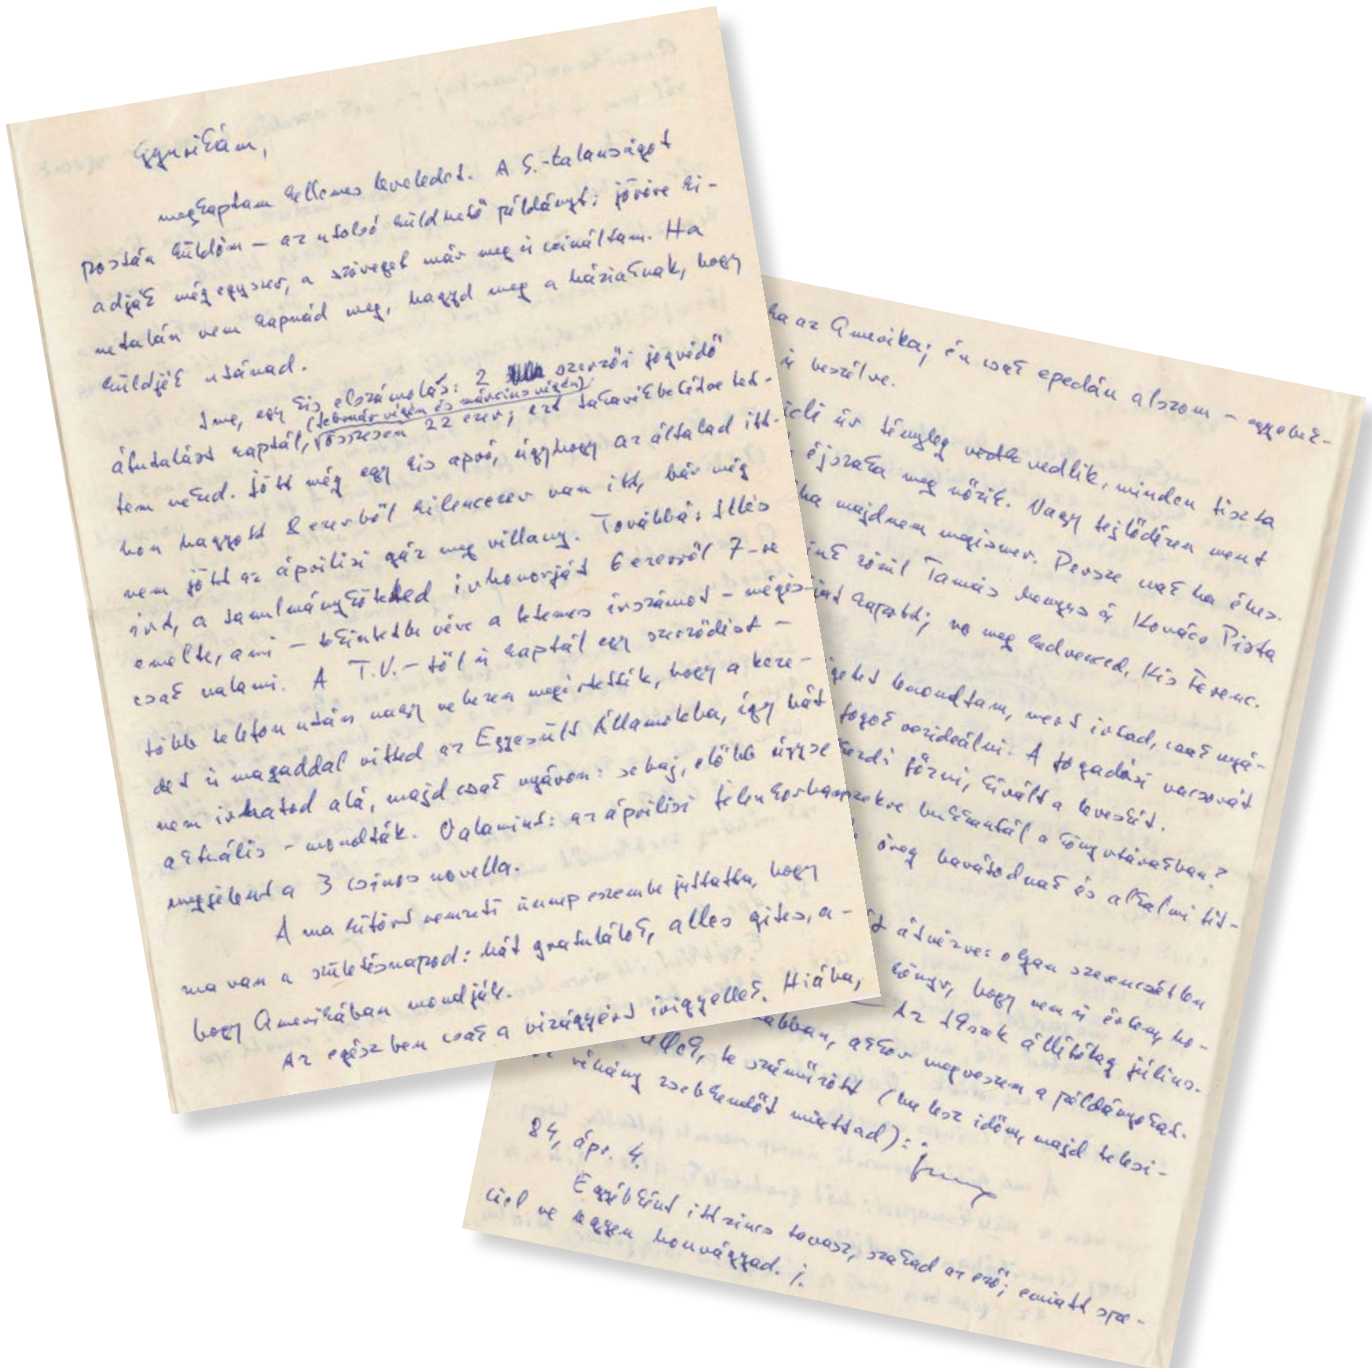 Gyurikám,
megkaptam kellemes leveledet. A S.-talanságot
postán küldöm – az utolsó küldhető példányt; jövőre ki-
adják még egyszer, a szöveget már meg is csináltam. Ha
netalán nem kapnád meg, hagyd meg a háziaknak, hogy
küldjék utánad.
Íme, egy kis elszámolás: 2 szerzői jogvédő
(február végén és március végén)
átutalást kaptál, összesen 22 ezer; ezt takarékbetétbe tet-
tem néked. Jött még egy kis apró, úgyhogy az általad itt-
hon hagyott 8 ezerből kilencezer van itt, bár még
nem jött az áprilisi gáz meg villany. Továbbá: Illés
írt, a tanulmányköteted ívhonorját 6 ezerről 7-re
emelte, ami – tekintetbe véve a tetemes ívszámot – mégis
csak valami. A T.V.-től is kaptál egy szerződést –
több telefon után nagy nehezen megértették, hogy a keze-
det is magaddal vitted az Egyesült Államokba, így hát
nem írhatod alá, majd csak nyáron: sebaj, előbb úgyse
aktuális – mondták. Valamint: az áprilisi
megjelent a 3 csinos novella.
A ma kitört nemzeti ünnep eszembe juttatta, hogy
ma van a születésnapod: hát gratulálok, alles gites, a-
hogy Amerikában mondják.
Az egészben csak a vízágyért irigyellek. Hiába,
ha az Amerika; én csak epedán alszom – egyebek-
is beszélve.
úr tényleg vedlik, minden tiszta
éjszaka meg nőzik. Nagy fejlődésen ment
ha majdnem megismer. Persze csak ha éhes.
Tamás hangya és Kovács Pista
kapott; no meg kedvenced, Kis Ferenc.
lemondtam, mert írtad, csak nyá-
fogok A fogadási vacsorát
kezdi főzni, kivált a levesét.
bukkantál a könyvtárakban?
öreg barátodnak és alkalmi tit-
átnézve: olyan szerencsétlen
könyv, hogy nem is értem, ho-
Az Írások állítólag július-
ban, akkor megveszem a példányokat.
te száműzött (ha lesz időm, majd telesí-
néhány zsebkendőt miattad):
84, ápr. 4.
Egyébként itt sincs tavasz, szakad az eső; emiatt spe-
ciel ne legyen honvágyad. j.